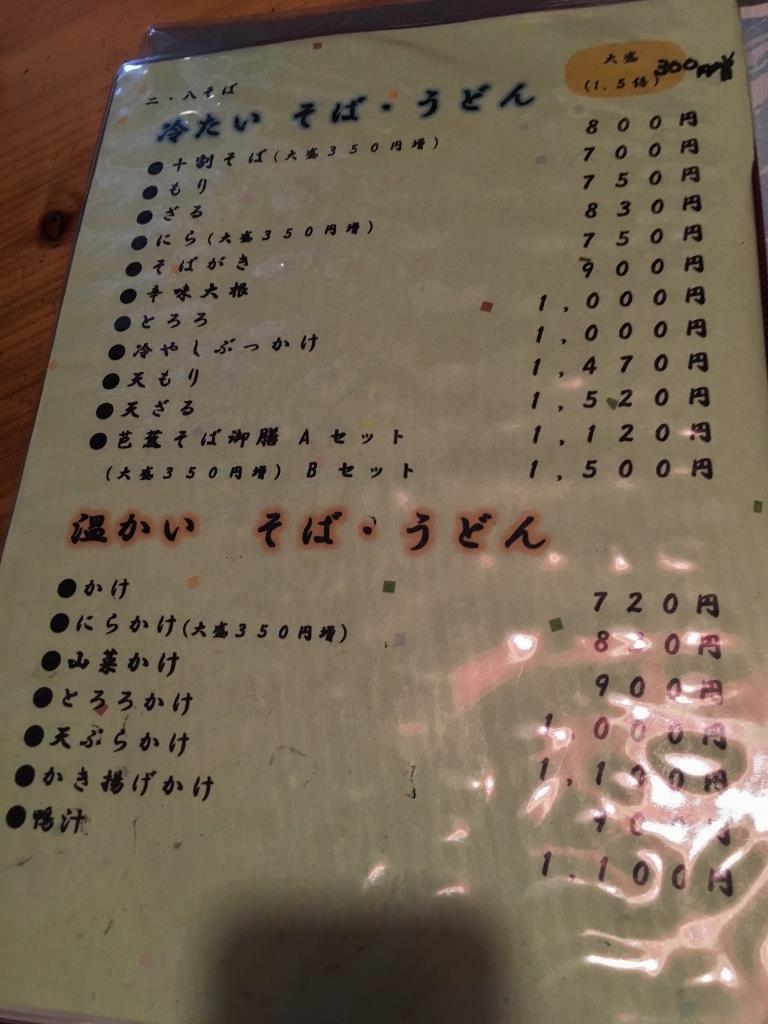 大盛
(1.5倍) 300円増
二・八そば
冷たい そば・うどん
●十割そば(大盛350円増) 800円
●もり 700円
●ざる 750円
●にら(大盛350円増) 830円
●そばがき 750円
●辛味大根 900円
●とろろ 1,000円
●冷やしぶっかけ 1,000円
●天もり 1,470円
●天ざる 1,520円
●芭蕉そば御膳 Aセット 1,120円
(大盛350円増) Bセット 1,500円
温かい そば・うどん
●かけ 720円
●にらかけ(大盛350円増)
●山菜かけ 900円
●とろろかけ 1,000円
●天ぷらかけ
●かき揚げかけ
●鴨汁 1,100円